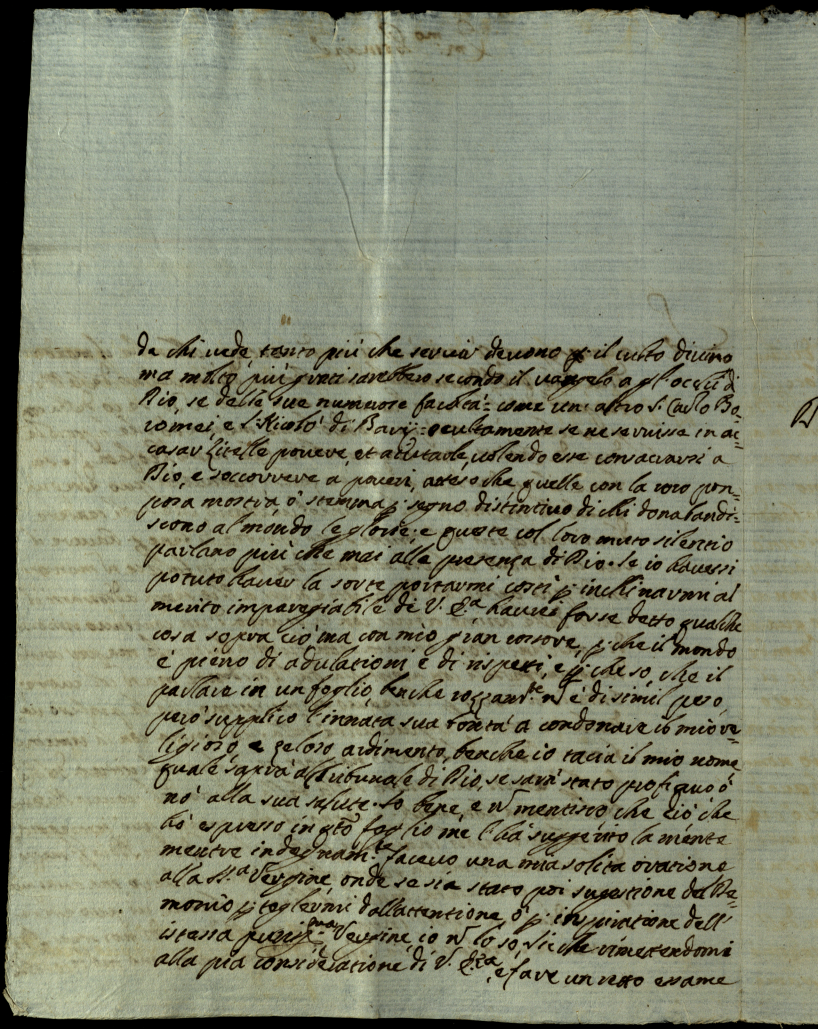 da chi vede, tanto più che servir devono p il culto divino
ma molto più grati sarebbero secondo il vangelo a gl'occhi di
Dio, se delle sue numerose facoltà come un altro S. Carlo Bo=
romei e S. Nicolò di Bari occultamente se ne servisse in ac=
casar Zitelle povere, et aiutarle, volendo esse consacrarsi a
Dio, e soccorrere à poveri, atteso che quelle con la loro pom=
posa mostra, ò stemma p segno distintivo di chi dona bandi=
scono al mondo le glorie, e queste col loro muto silentio
parlano più che mai alla presenza di Dio. Se io havessi
potuto haver la sorte portarmi costì p inchinarmi al
merito impareggiabile di V. Eza havrei forse detto qualche
cosa sopra ciò ma con mio gran rossore, p che il mondo
è pieno di adulationi e di rispetti, e p che so, che il
parlare in un foglio benche rozzamte n è di simil peso,
però supplico l'innata sua bontà a condonare il mio re=
ligioso, e zeloso ardimento, benche io tacia il mio nome
quale saprà al Tribunale di Dio, se sarà stato proficuo ò
nò alla sua salute. So bene, e n mentisco che ciò che
hò espresso in qto foglio me l'hà suggerito la mente
mentre indegnamte facevo una mia solita oratione
alla SSa Vergine, onde se sia stato poi sugestione del De=
monio p togliermi dall'attentione, ò p inspiratione dell'
istessa purissma Vergine, io n lo sò. Si che rimettendomi
alla pia consideratione di V. Eza, e fare un retto esame